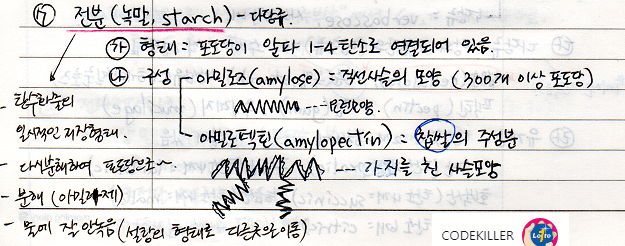 전분(녹말, starch) - 다당류.
㉮ 형태 = 포도당이 알파 1-4 탄소로 연결되어 있음.
㉯ 구성 - 아밀로즈(amylose) = 직선사슬의 모양 (300개 이상 포도당)
아밀로펙틴(amylopectin) = 찹쌀의 주성분
--- 가지를 친 사슬모양
- 탄수화물의
일시적인 저장형태.
- 다시분해하여 포도당으로~
- 분해 (아밀라제)
- 물에 잘 안녹음 (설탕의 형태로
CODEKILLER
Lotto